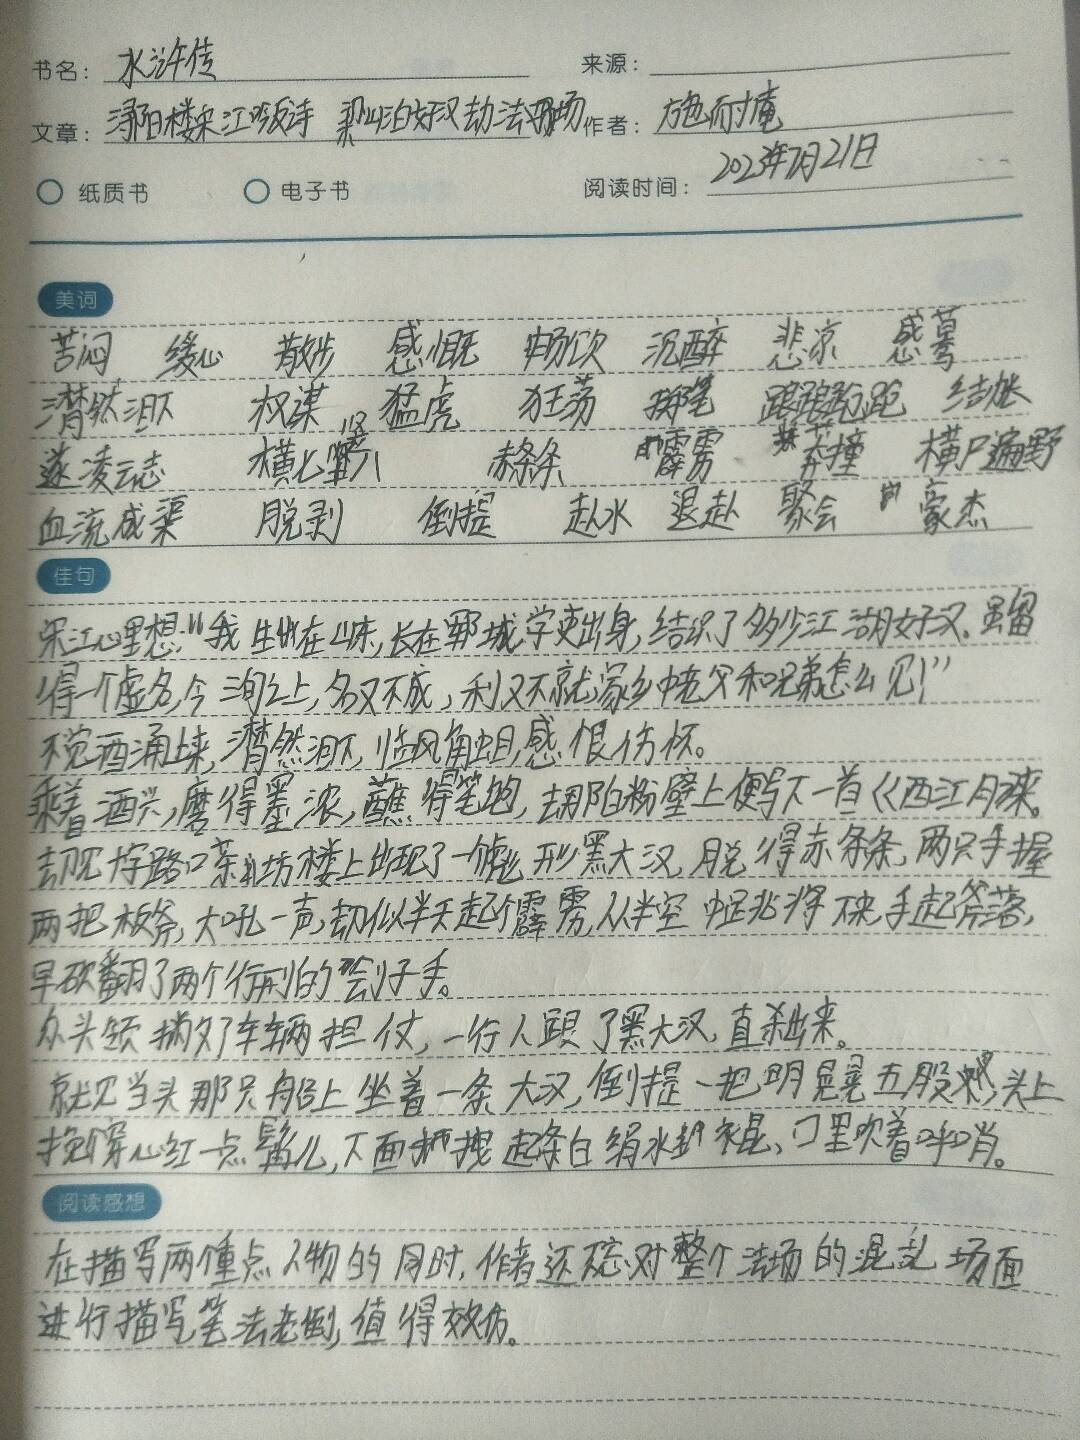 书名： 水浒传 来源：
文章： 浔阳楼宋江吟反诗 梁山泊好汉劫法场 作者： 施耐庵
纸质书 电子书 阅读时间： 2023年7月21日
美词
苦闷 缘心 散步 感慨 畅饮 沉醉 悲凉 感蓦
潸然泪下 权谋 猛虎 狂荡 掷笔 踉踉跄跄 结帐
遂凌云志 横七竖八 赤条条 霹雳 莽撞 横尸遍野
血流成渠 脱剥 倒提 赴水 退赴 聚会 豪杰
佳句
宋江心里想："我生在山东,长在郓城,学吏出身,结识了多少江湖好汉.虽留
得一个虚名,今三旬之上,名又不成,利又不就,家乡中老父和兄弟怎么见！"
不觉酒涌上来,潸然泪下,临风触目,感恨伤怀。
乘着酒兴,磨得墨浓,蘸得笔饱,去那白粉壁上便写下一首《西江月》来。
却见十字路口茶坊楼上出现了一个彪形黑大汉,脱得赤条条,两只手握
两把板斧,大吼一声,却似半天起个霹雳,从半空中跳将下来,手起斧落,
早砍翻了两个行刑的刽子手。
众头领撇了车辆担仗,一行人跟了黑大汉,直杀出来。
就见当头那只船上坐着一条大汉,倒提一把明晃晃五股叉,头上
挽个穿心红一点髻儿,下面拽起条白绢水裈、口里吹着呼哨。
阅读感想
在描写两个重点人物的同时,作者还不忘对整个法场的混乱场面
进行描写,笔法老到,值得效仿。